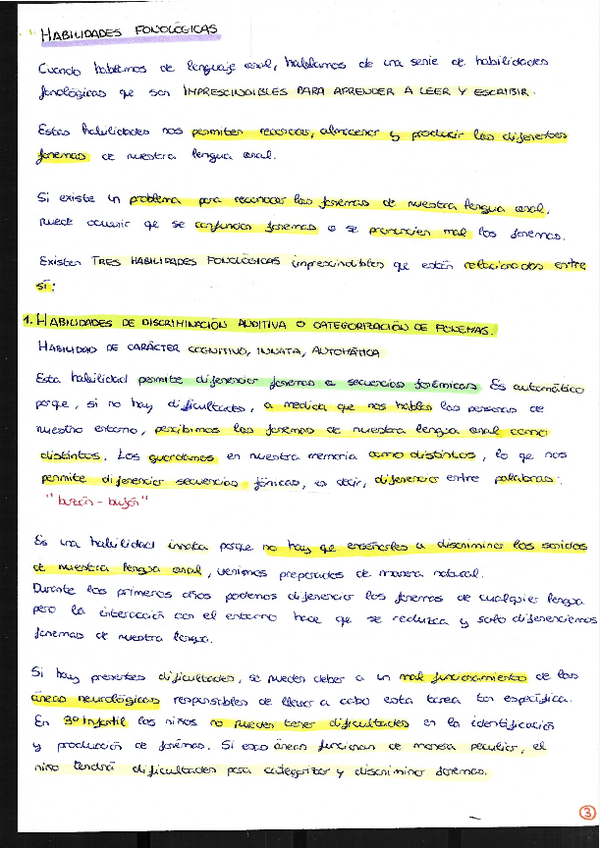 HABILIDADES FONOLÓGICAS
Cuando hablamos de lenguaje oral, hablamos de una serie de habilidades
fonológicas que son IMPRESCINDIBLES PARA APRENDER A LEER Y ESCRIBIR.
Estas habilidades nos permiten reconocer, almacenar y producir los diferentes
fonemas de nuestra lengua oral.
Si existe un problema para reconocer los fonemas de nuestra lengua oral,
puede ocurrir que se confundan fonemas o se pronuncien mal los fonemas.
Existen TRES HABILIDADES FONOLÓGICAS imprescindibles que están relacionadas entre
sí:
1. HABILIDADES DE DISCRIMINACIÓN AUDITIVA O CATEGORIZACIÓN DE FONEMAS.
HABILIDAD DE CARÁCTER COGNITIVO, INNATA, AUTOMÁTICA
Esta habilidad permite diferenciar fonemas o secuencias fonémicas. Es automático
porque, si no hay dificultades, a medida que nos hablan las personas de
nuestro entorno, percibimos los fonemas de nuestra lengua oral como
distintos. Los guardamos en nuestra memoria como distintos, lo que nos
permite diferenciar secuencias fónicas, es decir, diferenciar entre palabras:
"buzón - bufón"
Es una habilidad innata porque no hay que enseñarles a discriminar los sonidos
de nuestra lengua oral, venimos preparados de manera natural.
Durante los primeros años podemos diferenciar los fonemas de cualquier lengua
pero la interacción con el entorno hace que se reduzca y solo diferenciemos
fonemas de nuestra lengua.
Si hay presentes dificultades, se pueden deber a un mal funcionamiento de las
áreas neurológicas responsables de llevar a cabo esta tarea tan específica.
En 3º Infantil los niños no pueden tener dificultades en la identificación
y producción de fonemas. Si esas áreas funcionan de manera peculiar, el
niño tendrá dificultades para categorizar y discriminar fonemas.
3